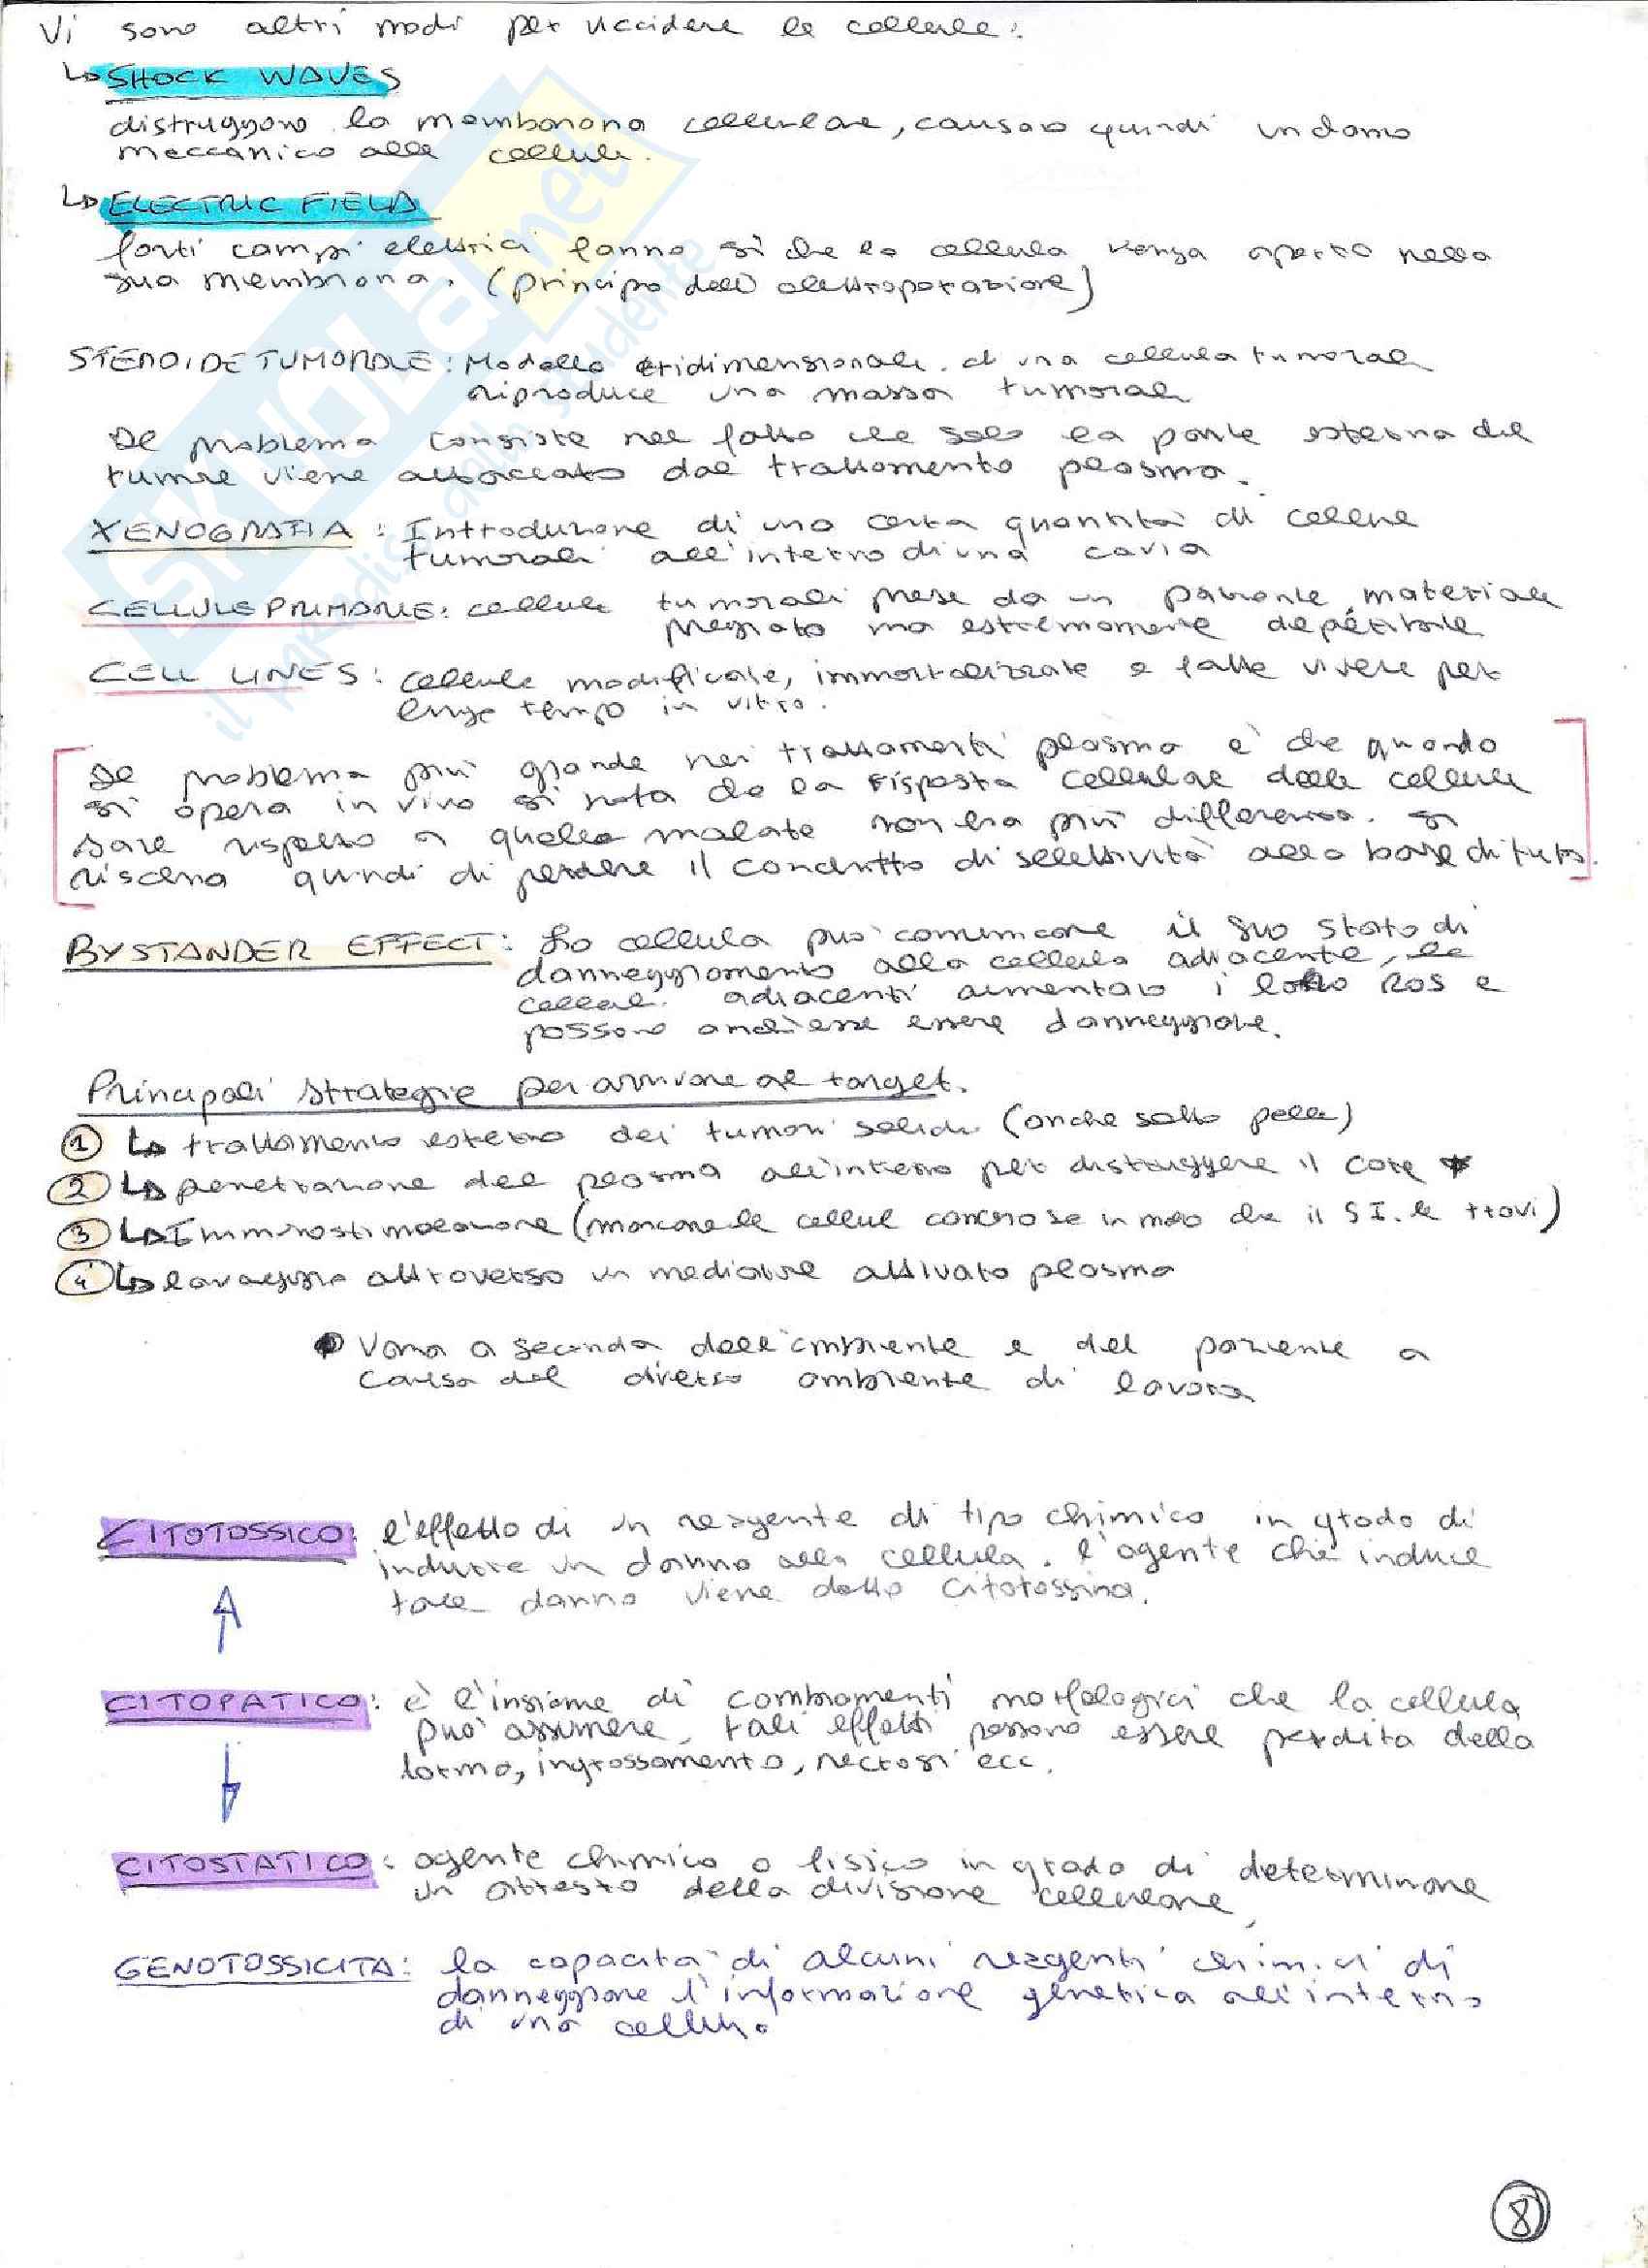 Vi sono altri modi per uccidere le cellule:
↳ SHOCK WAVES
distruggono la membrana cellulare, causano quindi un danno
meccanico alle cellule.
↳ ELECTRIC FIELD
forti campi elettrici fanno sì che la cellula venga aperta nella
sua membrana. (principio dell'elettroporazione)
STEROIDE TUMORALE: Modello tridimensionale di una cellula tumorale
riproduce una massa tumorale
Il problema consiste nel fatto che solo la parte esterna del
tumore viene attaccato dal trattamento plasma.
XENOGRAFIA: Introduzione di una certa quantità di cellule
tumorali all'interno di una cavia
CELLULE PRIMARIE: cellule tumorali prese da un paziente, materiale
pregiato ma estremamente deperibile
CELL LINES: cellule modificate, immortalizzate e fatte vivere per
lungo tempo in vitro.
Il problema più grande nei trattamenti plasma è che quando
si opera in vivo si nota che la risposta cellulare delle cellule
sane rispetto a quelle malate non era più differenza. Si
rischia quindi di perdere il concetto di selettività alla base di tutto.
BYSTANDER EFFECT: La cellula può comunicare il suo stato di
danneggiamento alla cellula adiacente, le
cellule adiacenti aumentano i loro ROS e
possono anch'esse essere danneggiate.
Principali strategie per arrivare al target.
1 ↳ trattamento esterno dei tumori solidi (anche sotto pelle)
2 ↳ penetrazione del plasma all'interno per distruggere il core *
3 ↳ Immunostimolazione (marcare le cellule cancerose in modo che il S.I. le trovi)
4 ↳ lavaggio attraverso un mediatore attivato plasma
Varia a seconda dell'ambiente e del paziente a
causa del diverso ambiente di lavoro
CITOTOSSICO: l'effetto di un reagente di tipo chimico in grado di
indurre un danno alla cellula. l'agente che induce
tale danno viene detto citotossina.
CITOPATICO: è l'insieme di cambiamenti morfologici che la cellula
può assumere, tali effetti possono essere perdita della
forma, ingrossamento, necrosi ecc.
CITOSTATICO: agente chimico o fisico in grado di determinare
un arresto della divisione cellulare
GENOTOSSICITA: la capacità di alcuni reagenti chimici di
danneggiare l'informazione genetica all'interno
di una cellula
8
SKUOLA.net
il paradiso dello studente